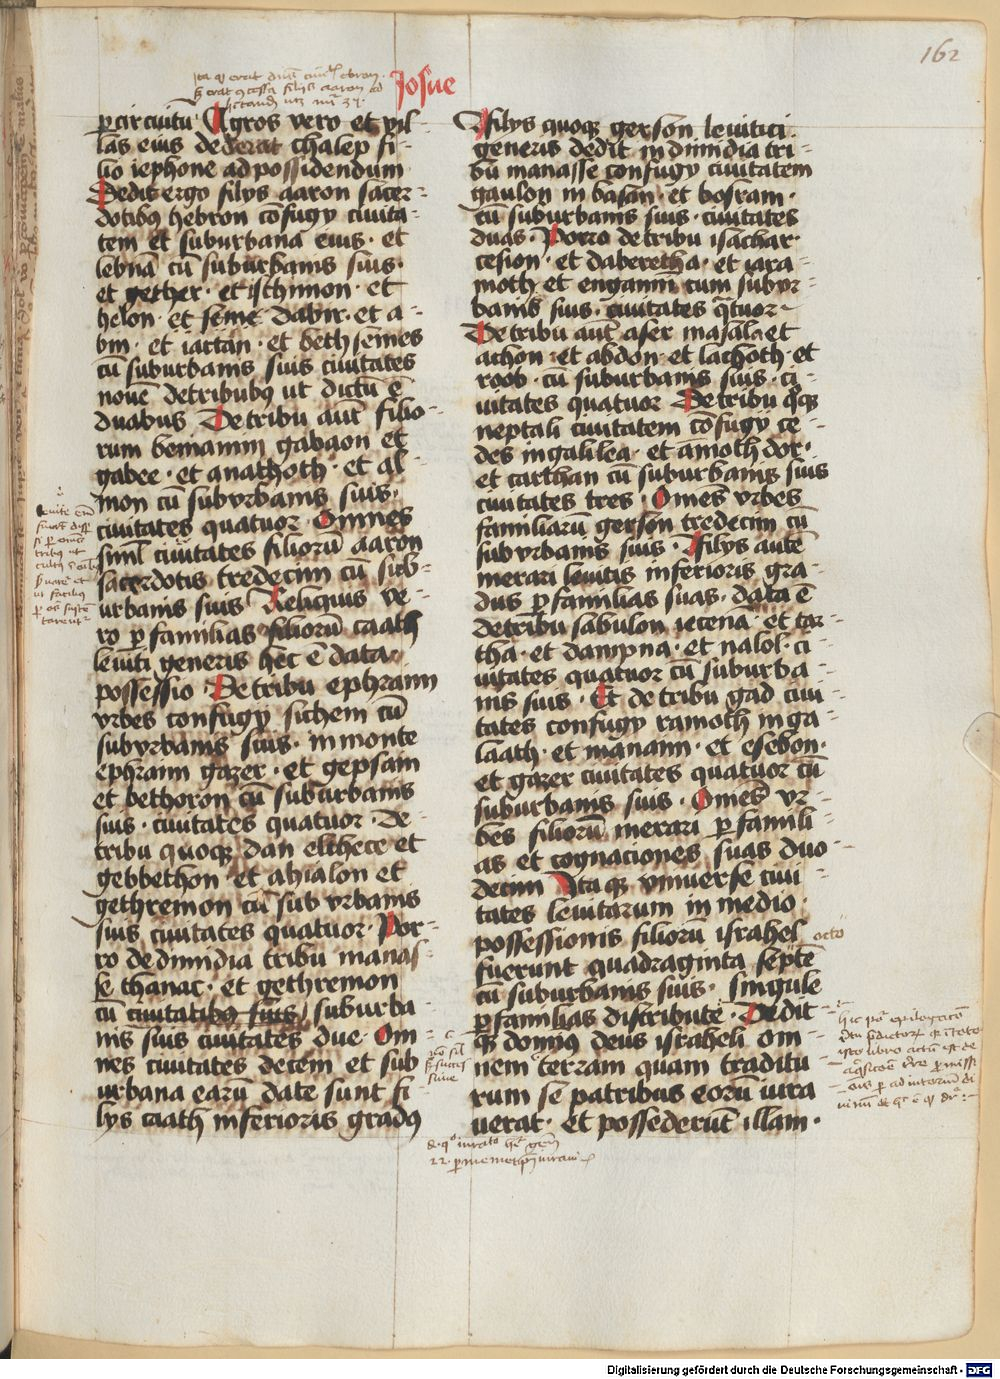 162
Josue
p circuitū Agros vero et vil-
las eius dederat chalep fi-
lio iephone ad possidendum
Dedit ergo filys aaron sacer-
dotibus hebron cōfugy ciuita-
tem et suburbana eius · et
lebnā cū suburbanis suis ·
et gether · et isthimon · et
helon · et seme dabir · et a-
bin · et iactan · et beth semes
cū suburbanis suis ciuitates
nouē de tribubꝰ ut dictū ē
duabus De tribu aut̄ filio-
rum beniamin gabaon et
gabee · et anathoth · et al-
mon cū suburbanis suis ·
ciuitates quatuor · Omnes
siml̄ ciuitates filiorū aaron
sacerdotis tredecim cū sub-
urbanis suis Reliquis ve-
ro p familias filiorū caath
leuiti generis hec ē data
possessio · De tribu ephraim
vrbes confugy sichem cū
suburbanis suis · in monte
ephraim gazer · et gepsam
et bethoron cū suburbanis
suis · ciuitates quatuor · De-
tribu quoqꝫ dan elthece et
gebbethon et ahialon et
gethremon cū sub vrbanis
suis ciuitates quatuor · Por-
ro de dimidia tribu manas-
se thanac · et gethremon
cū ciuitatibꝰ suis suburba
nis suis ciuitates due · Om
nes ciuitates decem et sub
urbana earū date sunt fi
lys caath inferioris gradꝰ
filys quoqꝫ gerson leuitici
generis dedit in dimidia tri-
bu manasse confugy ciuitatem
gaulon in basan · et bosram ·
cū suburbanis suis · ciuitates
duas · Porro de tribu isachar ·
cesion · et daberetha · et iara-
moth et engannī cum subur-
banis suis · ciuitates q̄tuor
De tribu aut̄ aser masala et
achon · et abdon · et lachoth · et
roob · cū suburbanis suis · ci-
uitates quatuor De tribu q̊qꝫ
neptali ciuitatem cōfugy ce-
des in galilea · et amoth dor ·
et carthan cū suburbanis suis
ciuitates tres · Omēs vrbes
familiarū gerson tredecim cū
sub vrbanis suis · filys autē
merari leuitis inferioris gra-
dus p familias suas · data ē
de tribu sabulon iecena · et car-
tha · et dampna · et nalol · ci-
uitates quatuor cū suburba-
nis suis · Et de tribu gad ciui-
tates confugy ramoth in ga-
laath · et manaim · et esebon ·
et gazer ciuitates quatuor cū
suburbanis suis · Omēs vr-
bēs filiorū merari p famili-
as et cognaciones suas duo-
decim Ita qꝫ vniuerse ciui-
tates leuitarum in medio
possessionis filiorū israhel
octo
fuerunt quadraginta septē
cū suburbanis suis · singule
p familias distribute · Dedit
qꝫ domīus deus israheli om-
nem terram quam traditu
rum se patribus eorū iura
uerat · et possederūt illam ·
Digitalisierung gefördert durch die Deutsche Forschungsgemeinschaft · DFG